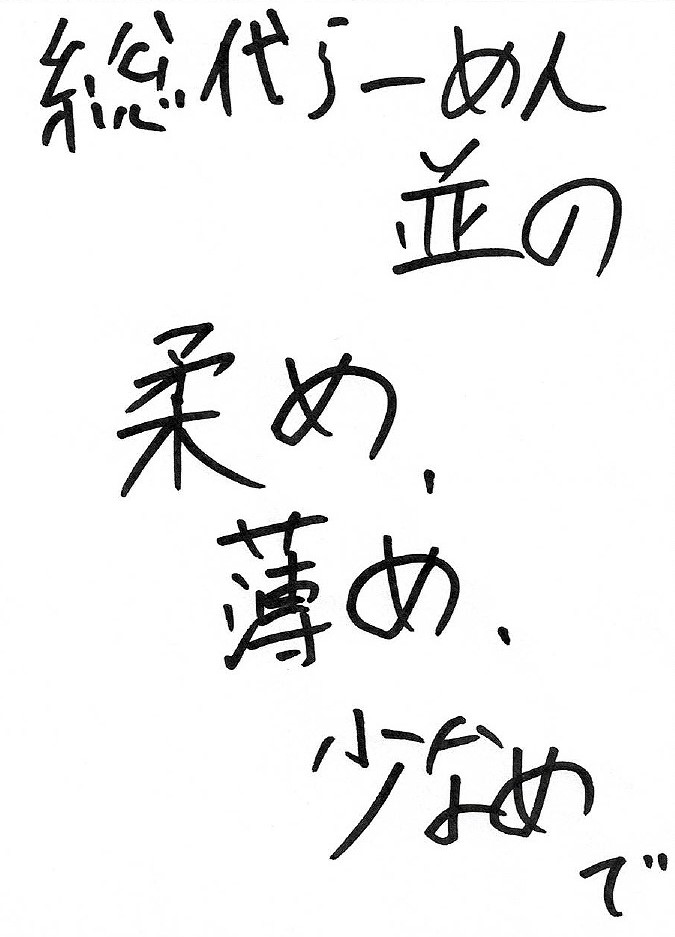 総代らーめん
並の
柔め、
薄め、
少なめ
で